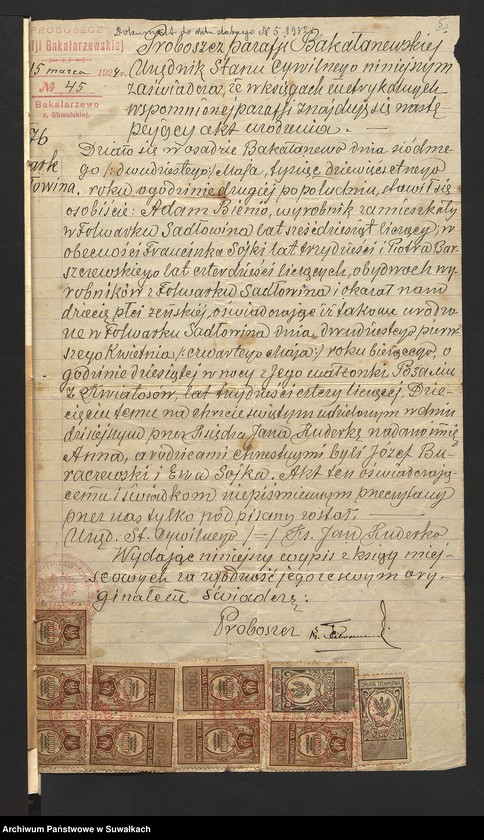 Dokument do aktu ślubnego N 5 1924 r.
5.
PROBOSZCZ
Parafji Bakałarzewskiej
15 marca 1924 r.
№ 45
Bakałarzewo
z. Suwalskiej.
Proboszcz parafji Bakałarzewskiej
Urzędnik Stanu Cywilnego niniejszym
zaświadcza, że w księgach metrykalnych
wspomnionej parafji znajduje się nastę-
pujący akt urodzenia. —
76
Działo się w osadzie Bakałarzewo dnia siódme-
go /: dwudziestego:/ Maja, tysiąc dziewięćsetnego
roku o godzinie drugiej po południu, stawił się
osobiście: Adam Bienio, wyrobnik zamieszkały
w Folwarku Sadłowina lat sześćdziesiąt liczący, w
obecności Franciszka Sojki lat trzydzieści i Piotra Bar-
szczewskiego lat czterdzieści liczących, obydwóch wy-
robników z Folwarku Sadłowina i okazał nam
dziecię płci żeńskiej, oświadczając iż takowe urodzo-
ne w Folwarku Sadłowina dnia dwudziestego pierw-
szego Kwietnia /: czwartego Maja:/ roku bieżącego, o
godzinie dziesiątej w nocy z Jego małżonki Rozalii
z Kwiatosów, lat trzydzieści cztery liczącej. Dzie-
cięciu temu na chrzcie świętym udzielonym w dniu
dzisiejszym przez Księdza Jana Huderkę nadano imię
Anna, a rodzicami chrzestnymi byli Józef Bu-
raczewski i Ewa Sojka. Akt ten oświadczają-
cemu i świadkom niepiśmiennym przeczytany
przez nas tylko podpisany został. —
Urzęd. St. Cywilnego /—/ Ks. Jan Huderko
Wydając niniejszy wypis z księg miej-
scowych za zgodność jego ze swym ory-
ginałem świadczę:
Proboszcz Ks.
OPŁATA STEMPLOWA
Archiwum Państwowe w Suwałkach